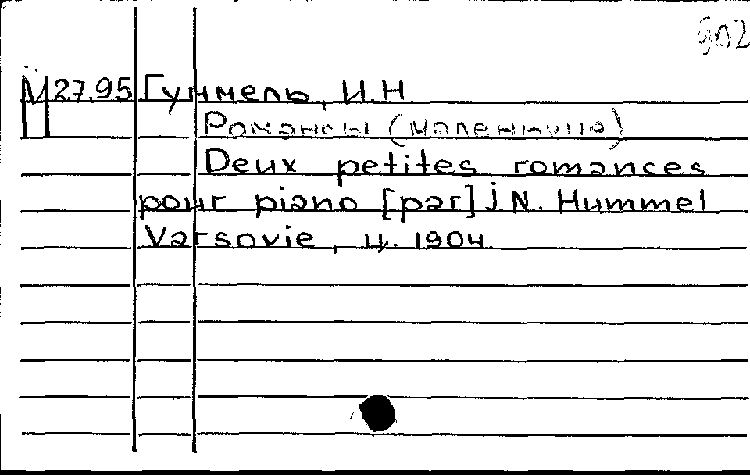 902
М 27.95 Гуммель, И.Н
Романсы (маленькие)
Deux petites romances
pour piano [par] J.N. Hummel
Varsovie, ц. 1904.